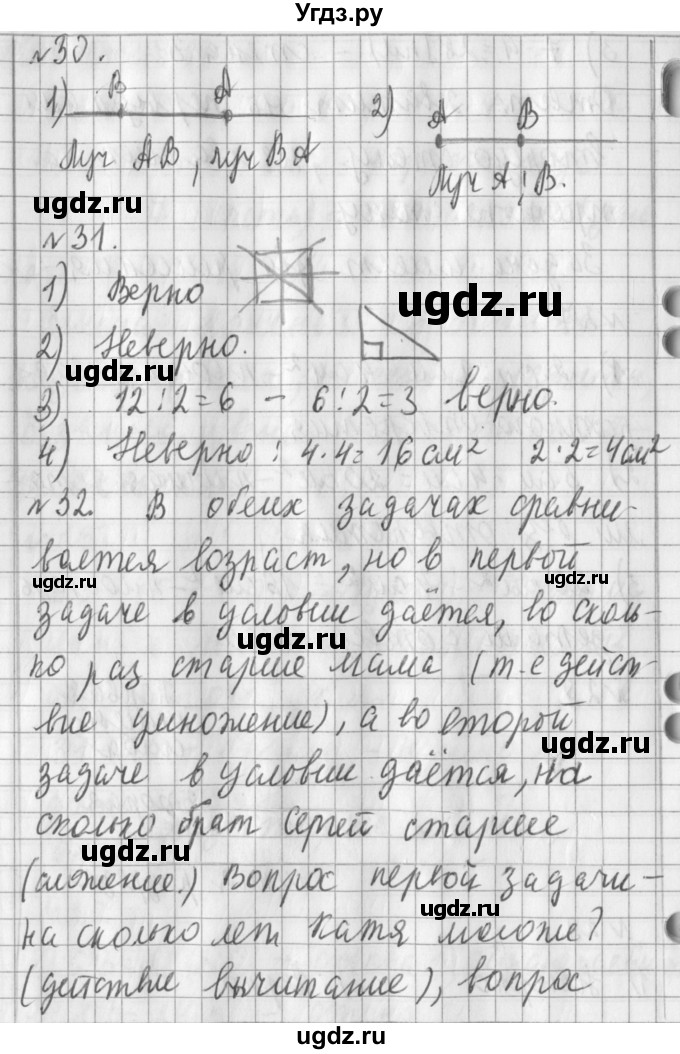 Угдз.ру
№30.
1) В А 2) А В
Луч АВ, луч ВА Луч А; В.
ugdz.ru
№31.
1) Верно
ugdz.ru
2) Неверно.
ugdz.ru
3) 12:2=6 - 6:2=3 верно.
4) Неверно: 4·4=16см² 2·2=4см²
№32. В обеих задачах сравни-
вается возраст, но в первой
ugdz.ru ugdz.ru
задаче в условии даётся, во сколь-
ugdz.ru
ко раз старше мама (т-е дейст-
вие умножение), а во второй
ugdz.ru
задаче в условии даётся, на
сколько брат Сергей старше
ugdz.ru
(сложение.) Вопрос первой задачи -
ugdz.ru
на сколько лет Катя моложе?
(действие вычитание), вопрос
ugdz.ru